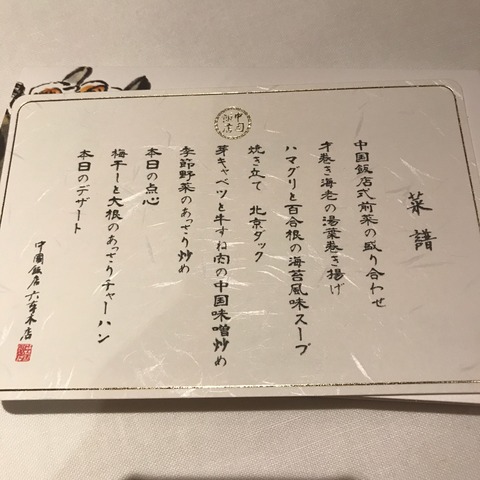 菜譜
中国飯店式前菜の盛り合わせ
才巻き海老の湯葉巻き揚げ
ハマグリと百合根の海苔風味スープ
焼き立て 北京ダック
芽キャベツと牛すね肉の中国味噌炒め
季節野菜のあっさり炒め
本日の点心
梅干しと大根のあっさりチャーハン
本日のデザート
中國飯店 六本木店
中国
飯店